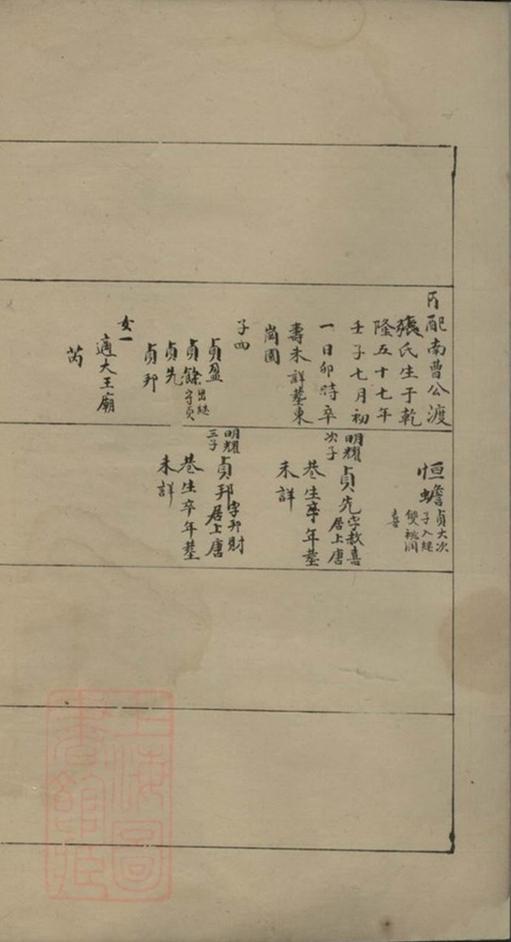 配南曹公渡
張氏生于乾
隆五十七年
壬子七月初
一日卯時卒
壽未詳墓東
崗園
子四
貞盈
貞餘出繼
貞先
貞邦
女一
適大王廟
芮
恒蟾貞大次
子入繼
雙祧潤
喜
明耀
次子
貞先字教喜
居上唐
巷生卒年墓
未詳
明耀
三子
貞邦字邦財
居上唐
巷生卒年墓
未詳
上海圖
書館藏